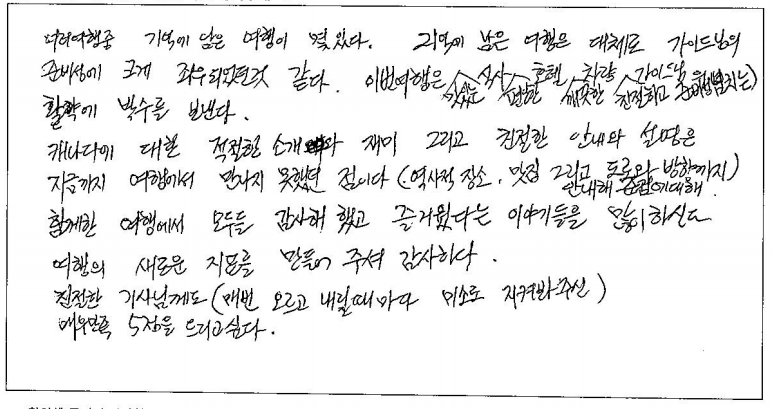 여러여행중 기억에 남은 여행이 몇있다. 기억에 남은 여행은 대체로 가이드님의
준비성에 크게 좌우되었던것 같다. 이번여행은 맛있는 식사 편안한 호텔 깨끗한 차량 친절하고 가이드님
활약에 박수를 보낸다.
캐나다에 대한 적절한 소개와 재미 그리고 친절한 안내와 설명은
지금까지 여행에서 만나지 못했던 점이다 (역사적 장소, 맛집 그리고 도로와 방향까지)
안내해
함께한 여행에서 모두들 감사해 했고 즐거웠다는 이야기들을 많이하신다
여행의 새로운 지표를 만들어 주셔 감사하다.
친절한 기사님께도 (매번 오르고 내릴때마다 미소로 지켜봐주신)
매우만족 5점을 드리고싶다.